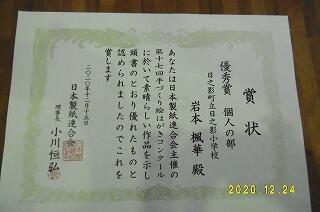 賞状
優秀賞 個人の部
日之影町立日之影小学校
岩本 楓華 殿
あなたは日本製紙連合会主催の
第十七回手づくり絵はがきコンクール
に於いて素晴らしい作品を示し
頭書のとおり優れたものと
認められましたのでこれを
賞します
二〇二〇年十二月十五日
日本製紙連合会
理事長 小川恒弘
2020.12.24